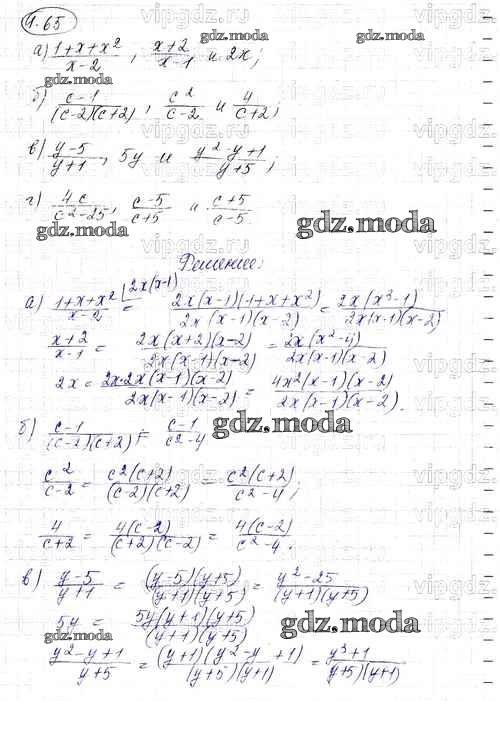 4.65
а) (1+x+x²)/(x-2), (x+2)/(x-1) и 2x;
б) (c-1)/((c-2)(c+2)), c²/(c-2) и 4/(c+2);
в) (y-5)/(y+1), 5y и (y²-y+1)/(y+5);
г) 4c/(c²-25), (c-5)/(c+5) и (c+5)/(c-5)
Решение:
а) (1+x+x²)/(x-2) ⌈2x(x-1) = (2x(x-1)(1+x+x²))/(2x(x-1)(x-2)) = (2x(x³-1))/(2x(x-1)(x-2))
(x+2)/(x-1) = (2x(x+2)(x-2))/(2x(x-1)(x-2)) = (2x(x²-4))/(2x(x-1)(x-2))
2x = (2x·2x(x-1)(x-2))/(2x(x-1)(x-2)) = (4x²(x-1)(x-2))/(2x(x-1)(x-2)).
б) (c-1)/((c-2)(c+2)) = (c-1)/(c²-4)
c²/(c-2) = (c²(c+2))/((c-2)(c+2)) = (c²(c+2))/(c²-4);
4/(c+2) = (4(c-2))/((c+2)(c-2)) = (4(c-2))/(c²-4).
в) (y-5)/(y+1) = ((y-5)(y+5))/((y+1)(y+5)) = (y²-25)/((y+1)(y+5))
5y = (5y(y+1)(y+5))/((y+1)(y+5))
(y²-y+1)/(y+5) = ((y+1)(y²-y+1))/((y+5)(y+1)) = (y³+1)/((y+5)(y+1))
gdz.moda
vipgdz.ru